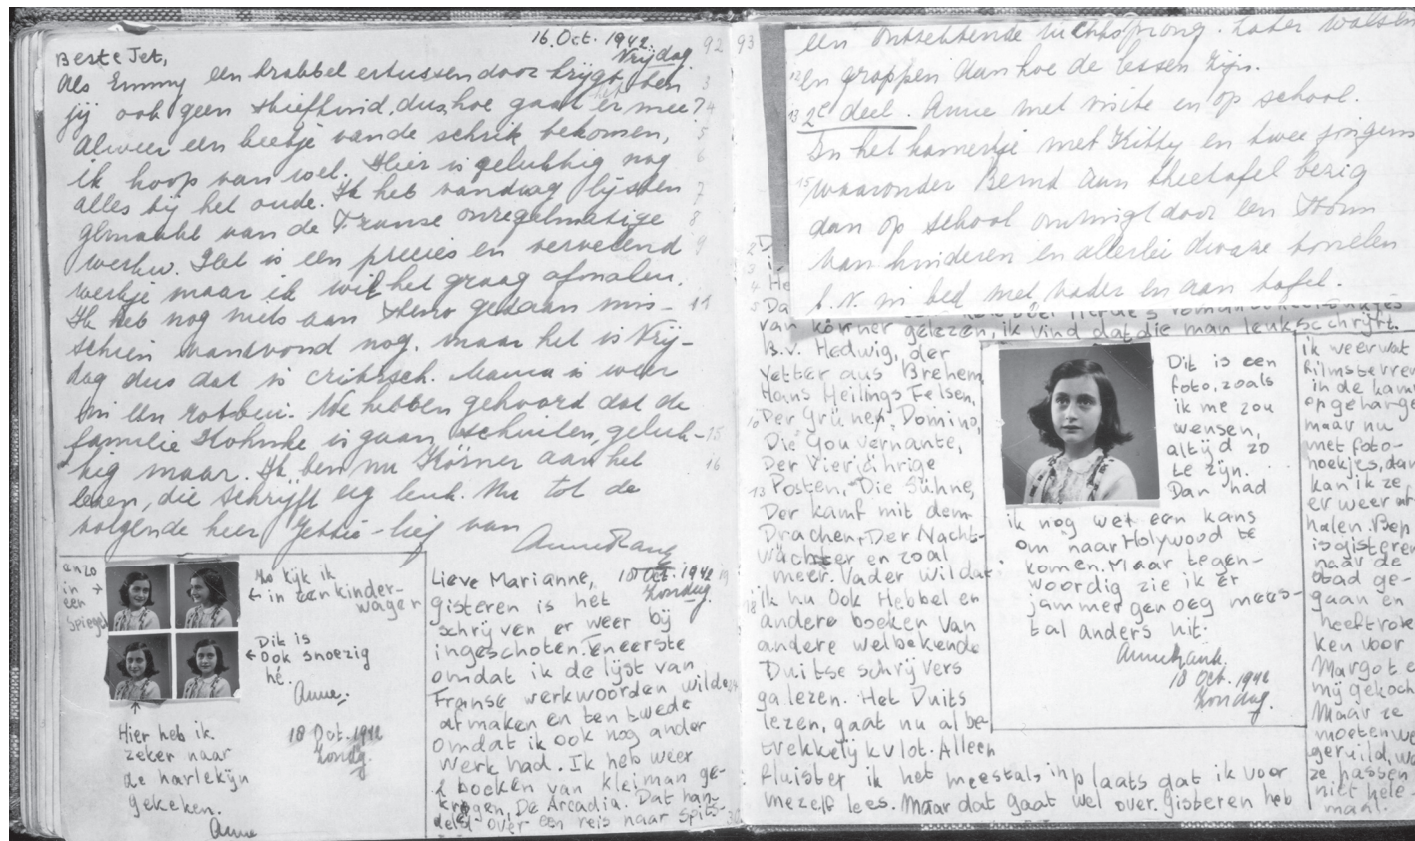 16. Oct. 1942.
Vrijdag.
92
Beste Jet,
Als Emmy een krabbel ertussen door krijgt, ben
3
jij ook geen stiefkind, dus hoe gaat het er mee?
4
Alweer een beetje van de schrik bekomen,
5
ik hoop van wel. Hier is gelukkig nog
6
alles bij het oude. Ik heb vandaag lijsten
7
gemaakt van de Franse onregelmatige
8
werkw. Het is een precies en vervelend
9
werkje maar ik wil het graag afmaken.
Ik heb nog niets aan steno gedaan mis-
11
schien vanavond nog, maar het is Vrij-
dag dus dat is critiesch. Mama is weer
in een rotbui. We hebben gehoord dat de
familie is gaan schuilen, geluk-
15
kig maar. Ik ben nu Körner aan het
16
lezen, die schrijft erg leuk. Nu tot de
volgende keer Jettie-lief van
Anne Frank
enzo
in →
een
spiegel
Zo kijk ik
← in een kinder-
wager
Dit is
← Ook snoezig
hé.
Anne,
↑
Hier heb ik
zeker naar
de harlekijn
gekeken.
Anne
18 Oct. 1942
Zondag.
Lieve Marianne,
18 Oct. 1942
Zondag.
gisteren is het
schrijven er weer bij
ingeschoten. Eneerste
omdat ik de lijst van
Franse werkwoorden wilde
afmaken en ten twede
omdat ik ook nog ander
werk had. Ik heb weer
2 boeken van kleiman ge-
kregen, De Arcadia. Dat han-
deld over een reis naar Spits-
30
93
een ontzettende luchtsprong. Later walsen
12
en grappen dan hoe de lessen zijn.
13
2e deel. Anne met visite en op school.
In het kamertje met Kitty en twee jongens
15
waaronder Bernd aan theetafel bezig
dan op school omringt door een stoom
van kinderen en allerlei dwaze tonelen
b.v. in bed met vader en aan tafel.
2
3
4 He
5 Da
van körner gelezen, ik vind dat die man leuk schrijft.
B.v. Hedwig, der
Vetter aus Brehem,
Hans Heilings Felsen,
10
Der Grünen Domino,
Die Gouvernante,
Der Vierjährige
13
Posten, Die Sühne,
Der kamf mit dem
Drachen, Der Nacht-
wächter en zoal
meer. Vader wil dat
18
ik nu Ook Hebbel en
andere boeken van
andere welbekende
Duitse schrijvers
ga lezen. Het Duits
lezen, gaat nu al be-
trekkelijk vlot. Alleen
fluister ik het meestals inplaats dat ik voor
mezelf lees. Maar dat gaat wel over. gisteren heb
Dit is een
foto, zoals
ik me zou
wensen,
altijd zo
te zijn.
Dan had
ik nog wel een kans
om naar Holywood te
komen. Maar tegen-
woordig zie ik er
jammer genoeg mees-
tal anders uit.
Annefrank.
18 Oct. 1942
Zondag.
ik weer wat
Filmsterren
in de kam
opgehange
maar nu
met foto-
hoekjes, dan
kan ik ze
er weer af
halen. Bep
is gisteren
naar de
stad ge-
gaan en
heeft rok
ken voor
Margot e
mij gekoch
Maar ze
moeten we
geruild, wa
ze passen
niet hele-
maal.